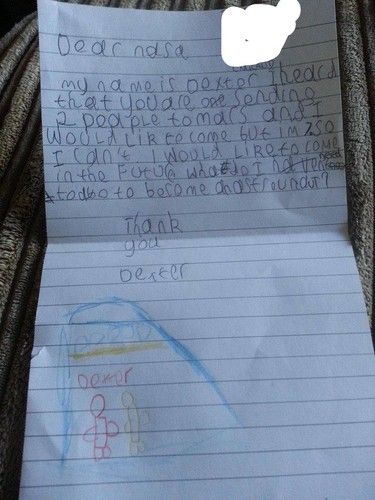 Dear nasa
my name is Dexter I heard
that you are sending
2 people to mars and I
would like to come but im 7 so
I can't I would like to come
in the future what do I need
to do to become an astronaut?
Thank
you
Dexter
Dexter